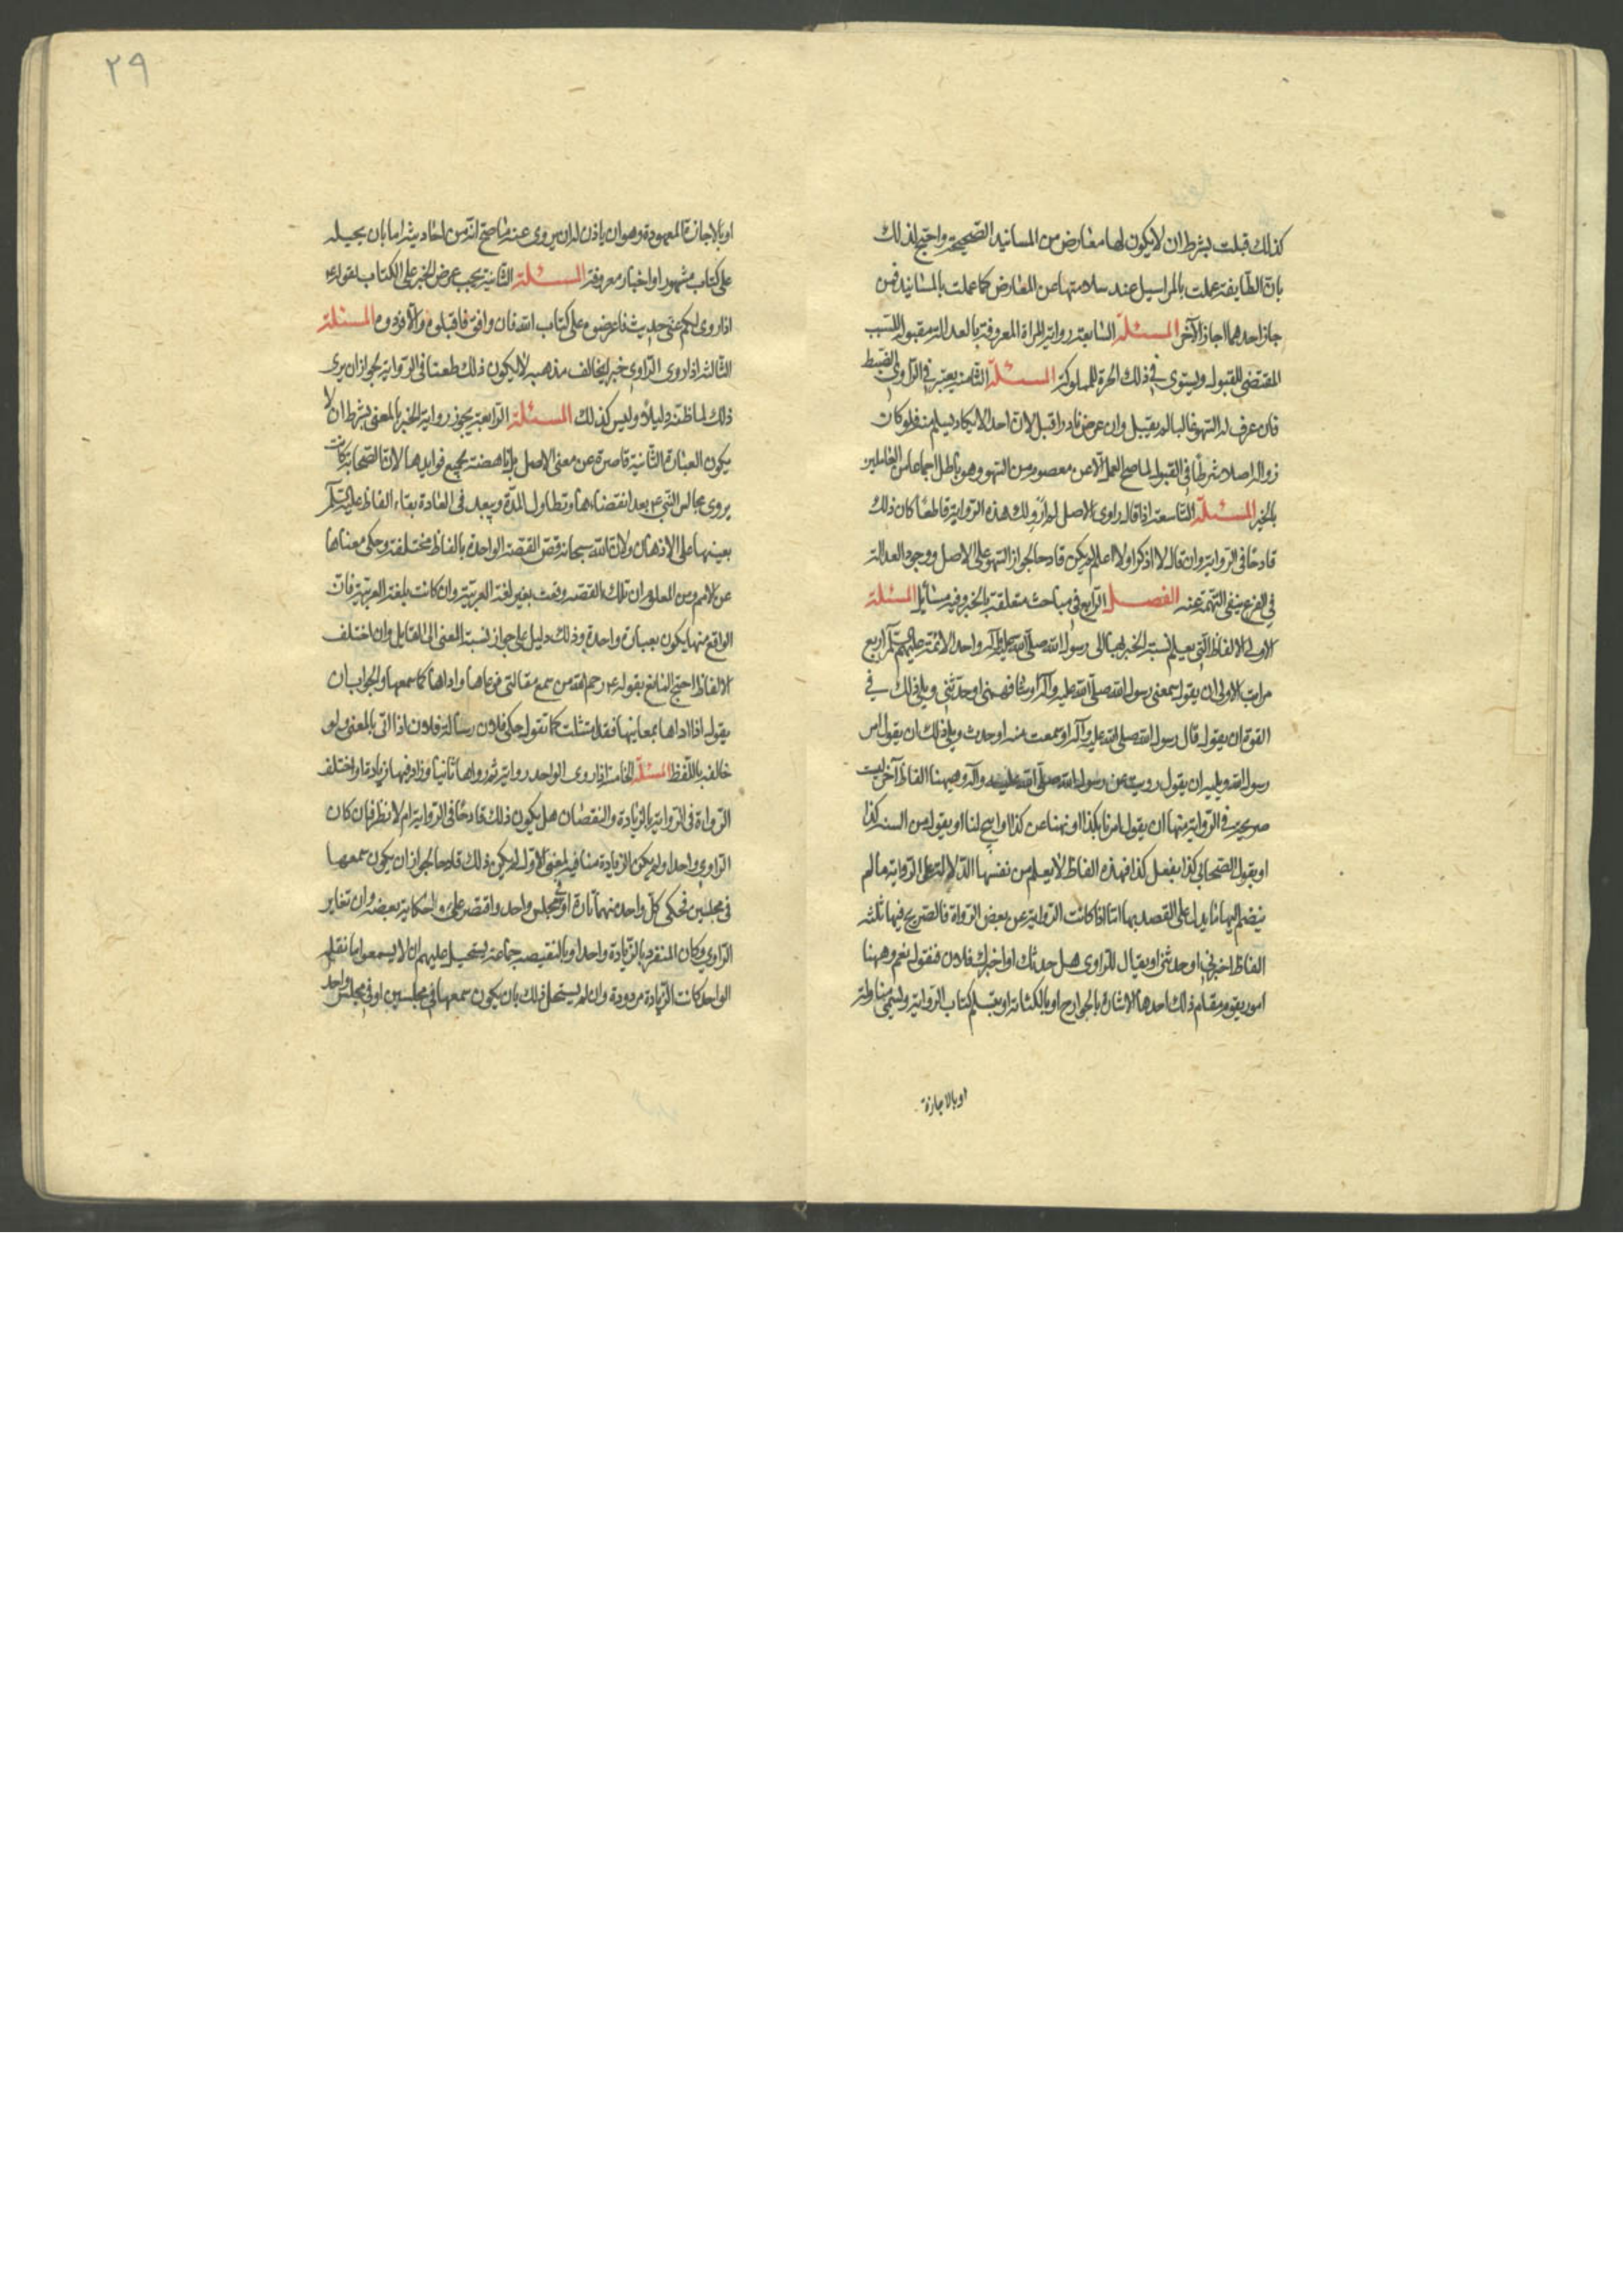 كذلك قبلت بشرط ان لا يكون لها معارض من المسانيد الصحيحة واحتج لذلك
بان الطايفة عملت بالمراسيل عند سلامتها عن المعارض كما عملت بالمسانيد فمن
جاز احدهما اجاز الآخر المسئلة السابعة رواية المراة المعروفة بالعدالة مقبولة للسبب
المقتضى للقبول ويستوى في ذلك الحرة المملوكة المسئلة الثامنة يعتبر في الراوى الضبط
فان عرف له السهو غالبا لم يقبل وان عرض نادرا قبل لان احدا لا يكاد يسلم منه فلو كان
زواله اصلا شرطا في القبول لما صح العمل الا عن معصوم من السهو وهو باطل اجماعا من العاملين
بالخبر المسئلة التاسعة اذا قال راوى الاصل لم ارو لك هذه الرواية قاطعا كان ذلك
قادحا فى الرواية وان قال لا اذكر او لا اعلم لم يكن قادحا لجواز السهو على الاصل ووجود العدالة
في الفرع ينفى التهمة عنه الفصل الرابع في مباحث متعلقة بالخبر وفيه مسائل المسئلة
الاولى الالفاظ التي يعلم نسبة الخبر بها الى رسول الله صلى الله عليه وآله واحد الائمة عليهم السلم اربع
مراتب الاولى ان يقول سمعنى رسول الله صلى الله عليه وآله او شافهنى او حدثنى ويلى ذلك في
القوة ان يقول قال رسول الله صلى الله عليه وآله او سمعت منه او حدث ويلى ذلك ان يقول امر
رسول الله ويليه ان يقول رويت عن رسول الله صلى الله عليه وآله وهيهنا الفاظ آخر ليست
صريحة في الرواية منها ان يقول امرنا بكذا او نهينا عن كذا او ابيح لنا او يقول من السنة كذا
او يقول الصحابى كنا نفعل كذا فهذه الفاظ لا يعلم من نفسها الدلالة على الرواية ما لم
ينضم اليها ما يدل على القصد بها اما اذا كانت الرواية عن بعض الرواة فالصريح فيها ثلثه
الفاظ اخبرني او حدثنى او يقال للراوى هل حدثك او اخبرك فلان فنقول نعم وههنا
امور يقوم مقام ذلك احدها الاشارة بالجوارح او بالكتابة او بتسلم كتاب الرواية ويسمى مناولة
او بالاجازة
٢٩
او بالاجازة المعهودة وهو ان ياذن له ان يروى عنه ما صح انه من احاديثه اما بان يحيله
على كتاب مشهور او اخبار معروفة المسئلة الثانية يجب عرض الخبر على الكتاب لقوله ع
اذا روى لكم عنى حديث فاعرضوه على كتاب الله فان وافق فاقبلوه والا فردوه المسئلة
الثالثة اذا روى الراوى خبرا يخالف مذهبه لا يكون ذلك طعنا في الرواية لجواز ان يرى
ذلك لما ظنه دليلا وليس كذلك المسئلة الرابعة يجوز رواية الخبر بالمعنى بشرط ان لا
يكون العبارة الثانية قاصرة عن معنى الاصل بل ناهضة بجميع فوايدها لان الصحابة كانت
يروى مجالس النبي ع بعد انقضاءها وتطاول المدة ويبعد فى العادة بقاء الفاظه عليه السلم
بعينها على الاذهان ولان الله سبحانه قص القصة الواحدة بالفاظ مختلفة وحكى معناها
عن الامم ومن المعلوم ان تلك القصة وقعت بغير لغة العربية وان كانت بلغة العربية فان
الواقع منها يكون بعبارة واحدة وذلك دليل على جواز نسبة المعنى الى القايل وان اختلف
الالفاظ احتج المانع بقوله ع رحم الله من سمع مقالتى فوعاها واداها كما سمعها والجواب ان
يقول اذا اداها بمعانيها فقد امتثلت كما تقول حكى فلان رسالة فلان اذا اتى بالمعنى ولو
خالفه باللفظ المسئلة الخامسة اذا روى الواحد رواية ثم رواها ثانيا وزاد فيها زيادة او اختلف
الرواة فى الرواية بالزيادة والنقصان هل يكون ذلك قادحا في الرواية ام لا نظر فان كان
الراوى واحدا ولم يكن الزيادة منافية لمعنى الاول لم يكن ذلك قادحا لجواز ان يكون سمعها
فى مجلسين فحكى كل واحد منهما تارة او في مجلس واحد واقتصر على الحكاية بعضه وان تغاير
الراوي وكان المنفرد بالزيادة واحدا وبالنقيصه جماعة يستحيل عليهم ان لا يسمعوا ما نقله
الواحد كانت الزيادة مردودة وان لم يستحل ذلك بان يكون سمعها في مجلسين او في مجلس واحد